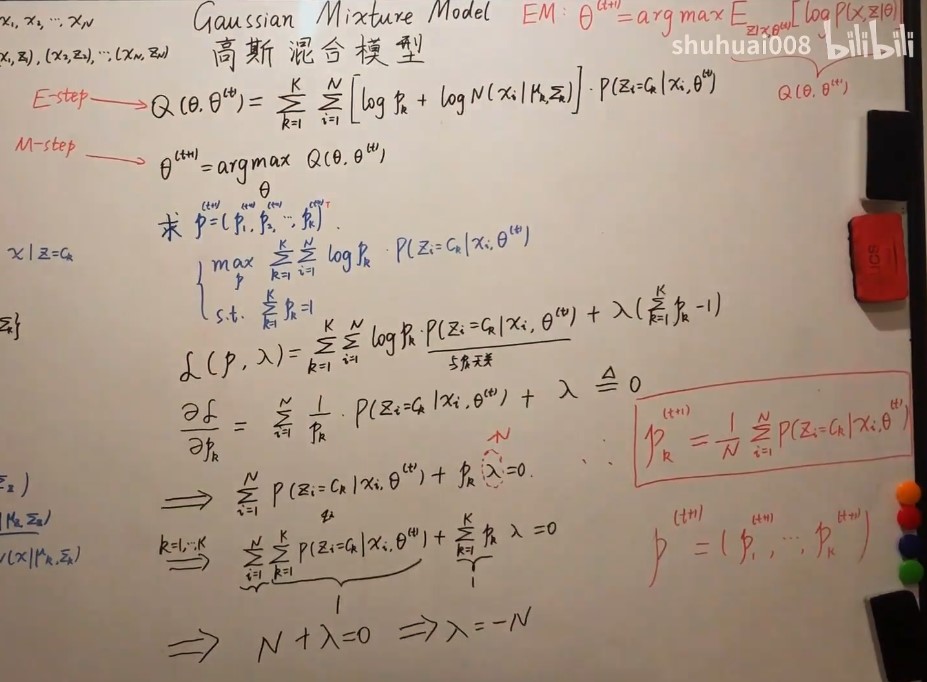 x₁, x₂, ⋯, x_N
x₁, z₁), (x₂, z₂), ⋯, (x_N, z_N)
Gaussian Mixture Model
高斯混合模型
EM: θ^(t+1) = argmax E_{z|x,θ^(t)} [log P(x,z|θ)]
shuhuai008 bilibili
Q(θ, θ^(t))
E-step → Q(θ, θ^(t)) = Σ_{k=1}^{K} Σ_{i=1}^{N} [log p_k + log N(x_i|μ_k, Σ_k)] · P(z_i=C_k|x_i, θ^(t))
M-step → θ^(t+1) = argmax_θ Q(θ, θ^(t))
求 p^(t+1) = (p₁^(t+1), p₂^(t+1), ⋯, p_k^(t+1))^T.
x|z=C_k
{ max_p Σ_{k=1}^{K} Σ_{i=1}^{N} log p_k · P(z_i=C_k|x_i, θ^(t))
s.t. Σ_{k=1}^{K} p_k = 1
Σ_k}
ℒ(p, λ) = Σ_{k=1}^{K} Σ_{i=1}^{N} log p_k · P(z_i=C_k|x_i, θ^(t)) + λ(Σ_{k=1}^{K} p_k − 1)
与p_k无关
∂ℒ/∂p_k = Σ_{i=1}^{N} 1/p_k · P(z_i=C_k|x_i, θ^(t)) + λ ≜ 0
-N
⟹ Σ_{i=1}^{N} P(z_i=C_k|x_i, θ^(t)) + p_k λ = 0.
∴ p_k^(t+1) = 1/N Σ_{i=1}^{N} P(z_i=C_k|x_i, θ^(t))
|μ_k, Σ_k)
N(x|μ_k, Σ_k)
k=1,⋯,K ⟹ Σ_{i=1}^{N} Σ_{k=1}^{K} P(z_i=C_k|x_i, θ^(t)) + Σ_{k=1}^{K} p_k λ = 0
1 1
p^(t+1) = (p₁^(t+1), ⋯, p_k^(t+1))
⟹ N + λ = 0 ⟹ λ = −N